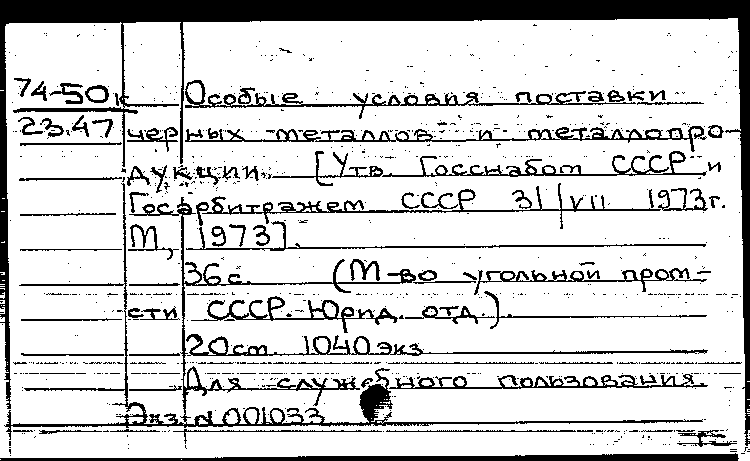 74-50к Особые условия поставки
23.47 черных металлов и металлопро-
дукции. [Утв. Госснабом СССР и
Госарбитражем СССР 31/VII 1973г.
М, 1973].
36 с. (М-во угольной пром-
сти СССР. Юрид. отд.).
20 см. 1040 экз
Для служебного пользования.
Экз N 001033